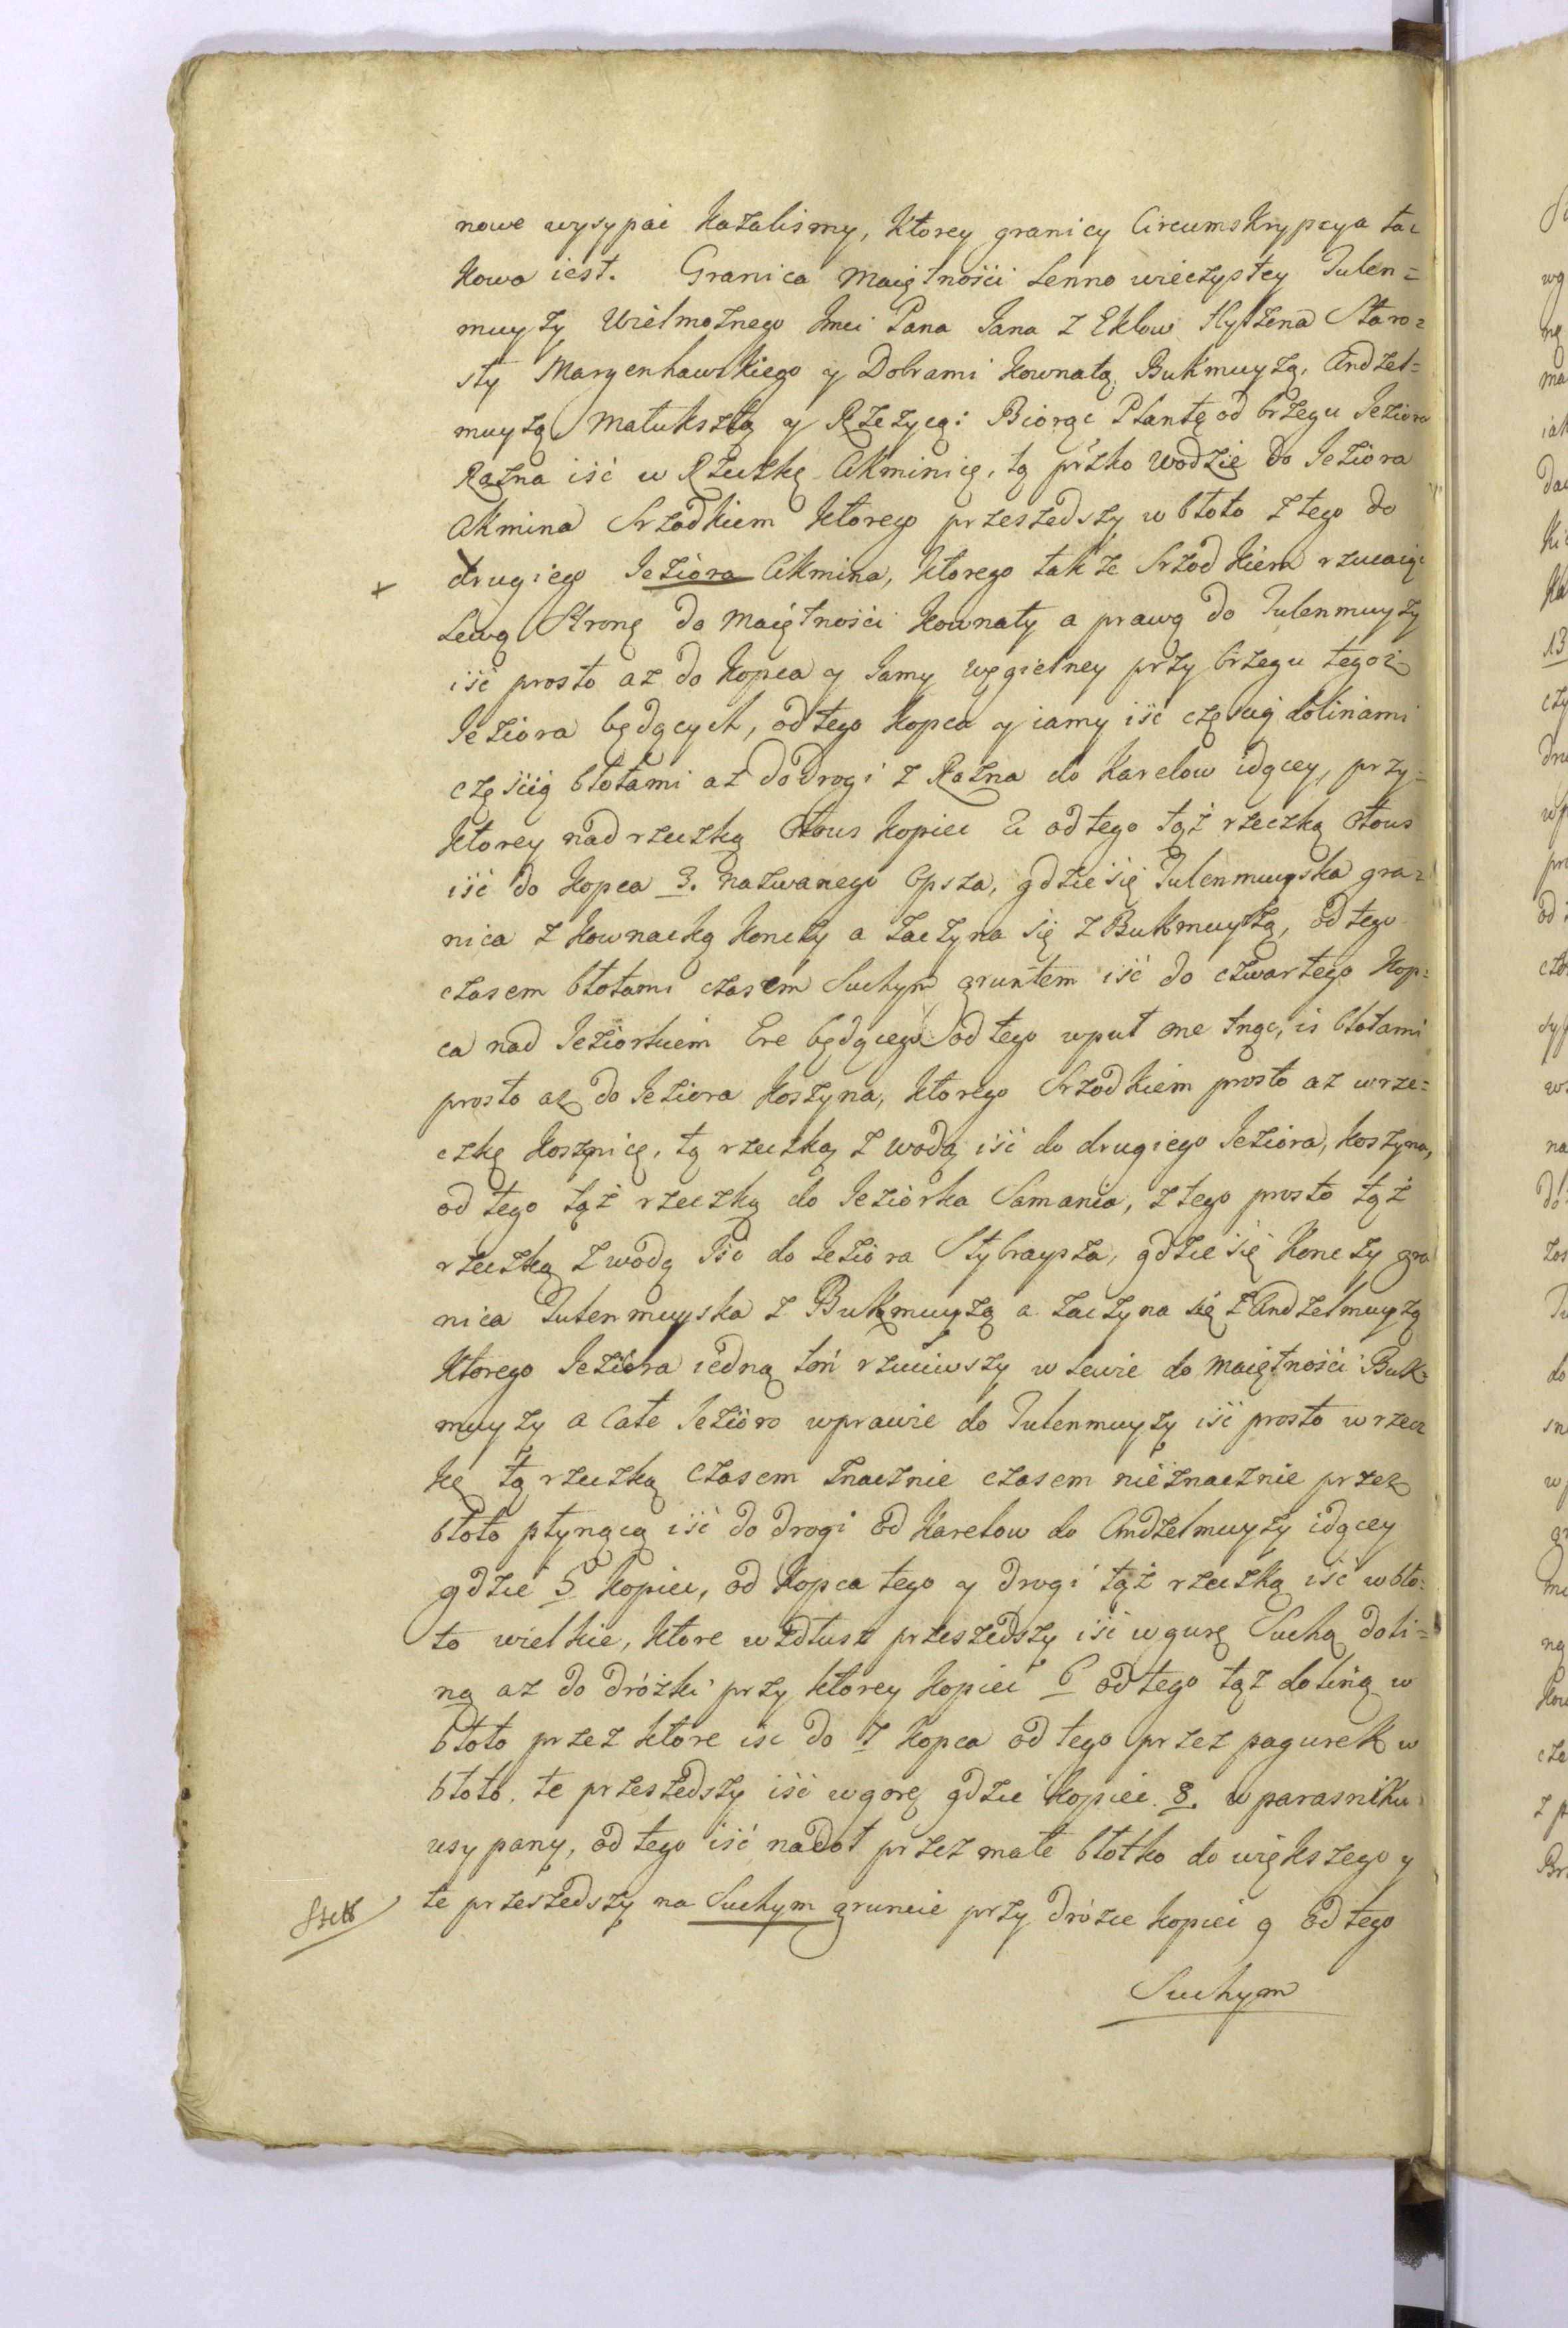 nowe wysypać kazalismy, ktorey granicy Circumskrypcya ta-
kowa iest. Granica Maiętności Lenno wieczystey Tulen=
muyzy Wielmoznego Jmci Pana Jana z Eklow Hylzena Staro=
sty Maryenhawskiego y Dobrami Kownatą, Bukmuyzą, Andzel=
muyzą, Matukszłą y Rzezycą: Biorąc Plantę od brzegu Jeziora
Razna iść w Rzeczkę Akminicę, tą przko wodzię do Jeziora
Akmina Srzodkiem ktorego przeszedszy w błoto z tego do
+ drugiego Jeziora Akmina, ktorego takze Srzodkiem rzucaiąc
Lewą Stronę do Maiętności Kownaty a prawą do Tulenmuyzy
iść prosto az do kopca y Jamy węgielney przy brzegu tegoż
Jeziora będących, od tego kopca y iamy iść częscią dolinami
częścią błotami aż do drogi z Razna do Karelow idącey, przy=
ktorey nad rzeczką Stous kopiec 2 od tego tąż rzeczką Stous
iść do kopca 3. nazwanego Opsza, gdzie się Tulenmuyska gra=
nica z Kownacką konczy a zaczyna się z Bukmuyzą, od tego
czasem błotami czasem Suchym gruntem iść do czwartego kop=
ca nad Jeziorkiem Ere będącego od tego wput one tnąc, is błotami
prosto aż do Jeziora Koszyna, ktorego Srzodkiem prosto az w rze=
czkę Kosznicę, tą rzeczką z wodą iść do drugiego Jeziora, Koszyna,
od tego tąż rzeczką do Jeziorka Samania, z tego prosto tąż
rzeczką z wodą Iść do Jeziora Stybraysza, gdzie się konczy gra
nica Tulenmuyska z Bukmuyzą a zaczyna się z Andzelmuyzą
ktorego Jeziora iedną toń rzuciwszy w lewie do Maiętności Buk=
muyzy a całe Jezioro wprawie do Tulenmuyzy iść prosto w rzecz
kę tą rzeczką czasem znacznie czasem nieznacznie przez
błoto płynącą iść do drogi od Karelow do Andzelmuyzy idącey
gdzie 5 kopiec, od kopca tego y drogi tąż rzeczką iść w bło=
to wielkie, ktore wzdłusz przeszedszy iść w gurę Suchą doli=
ną az do dróżki przy ktorey kopiec 6 od tego tąż doliną w
błoto przez ktore isc do 7 kopca od tego przez pagurek w
błoto. te przeszedszy iść w gorę gdzie kopiec 8. w parasniku
usypany, od tego iść nadoł przez małe błotko do większego y
te przeszedszy na Suchym gruncie przy dróże kopiec 9 od tego
Suchym